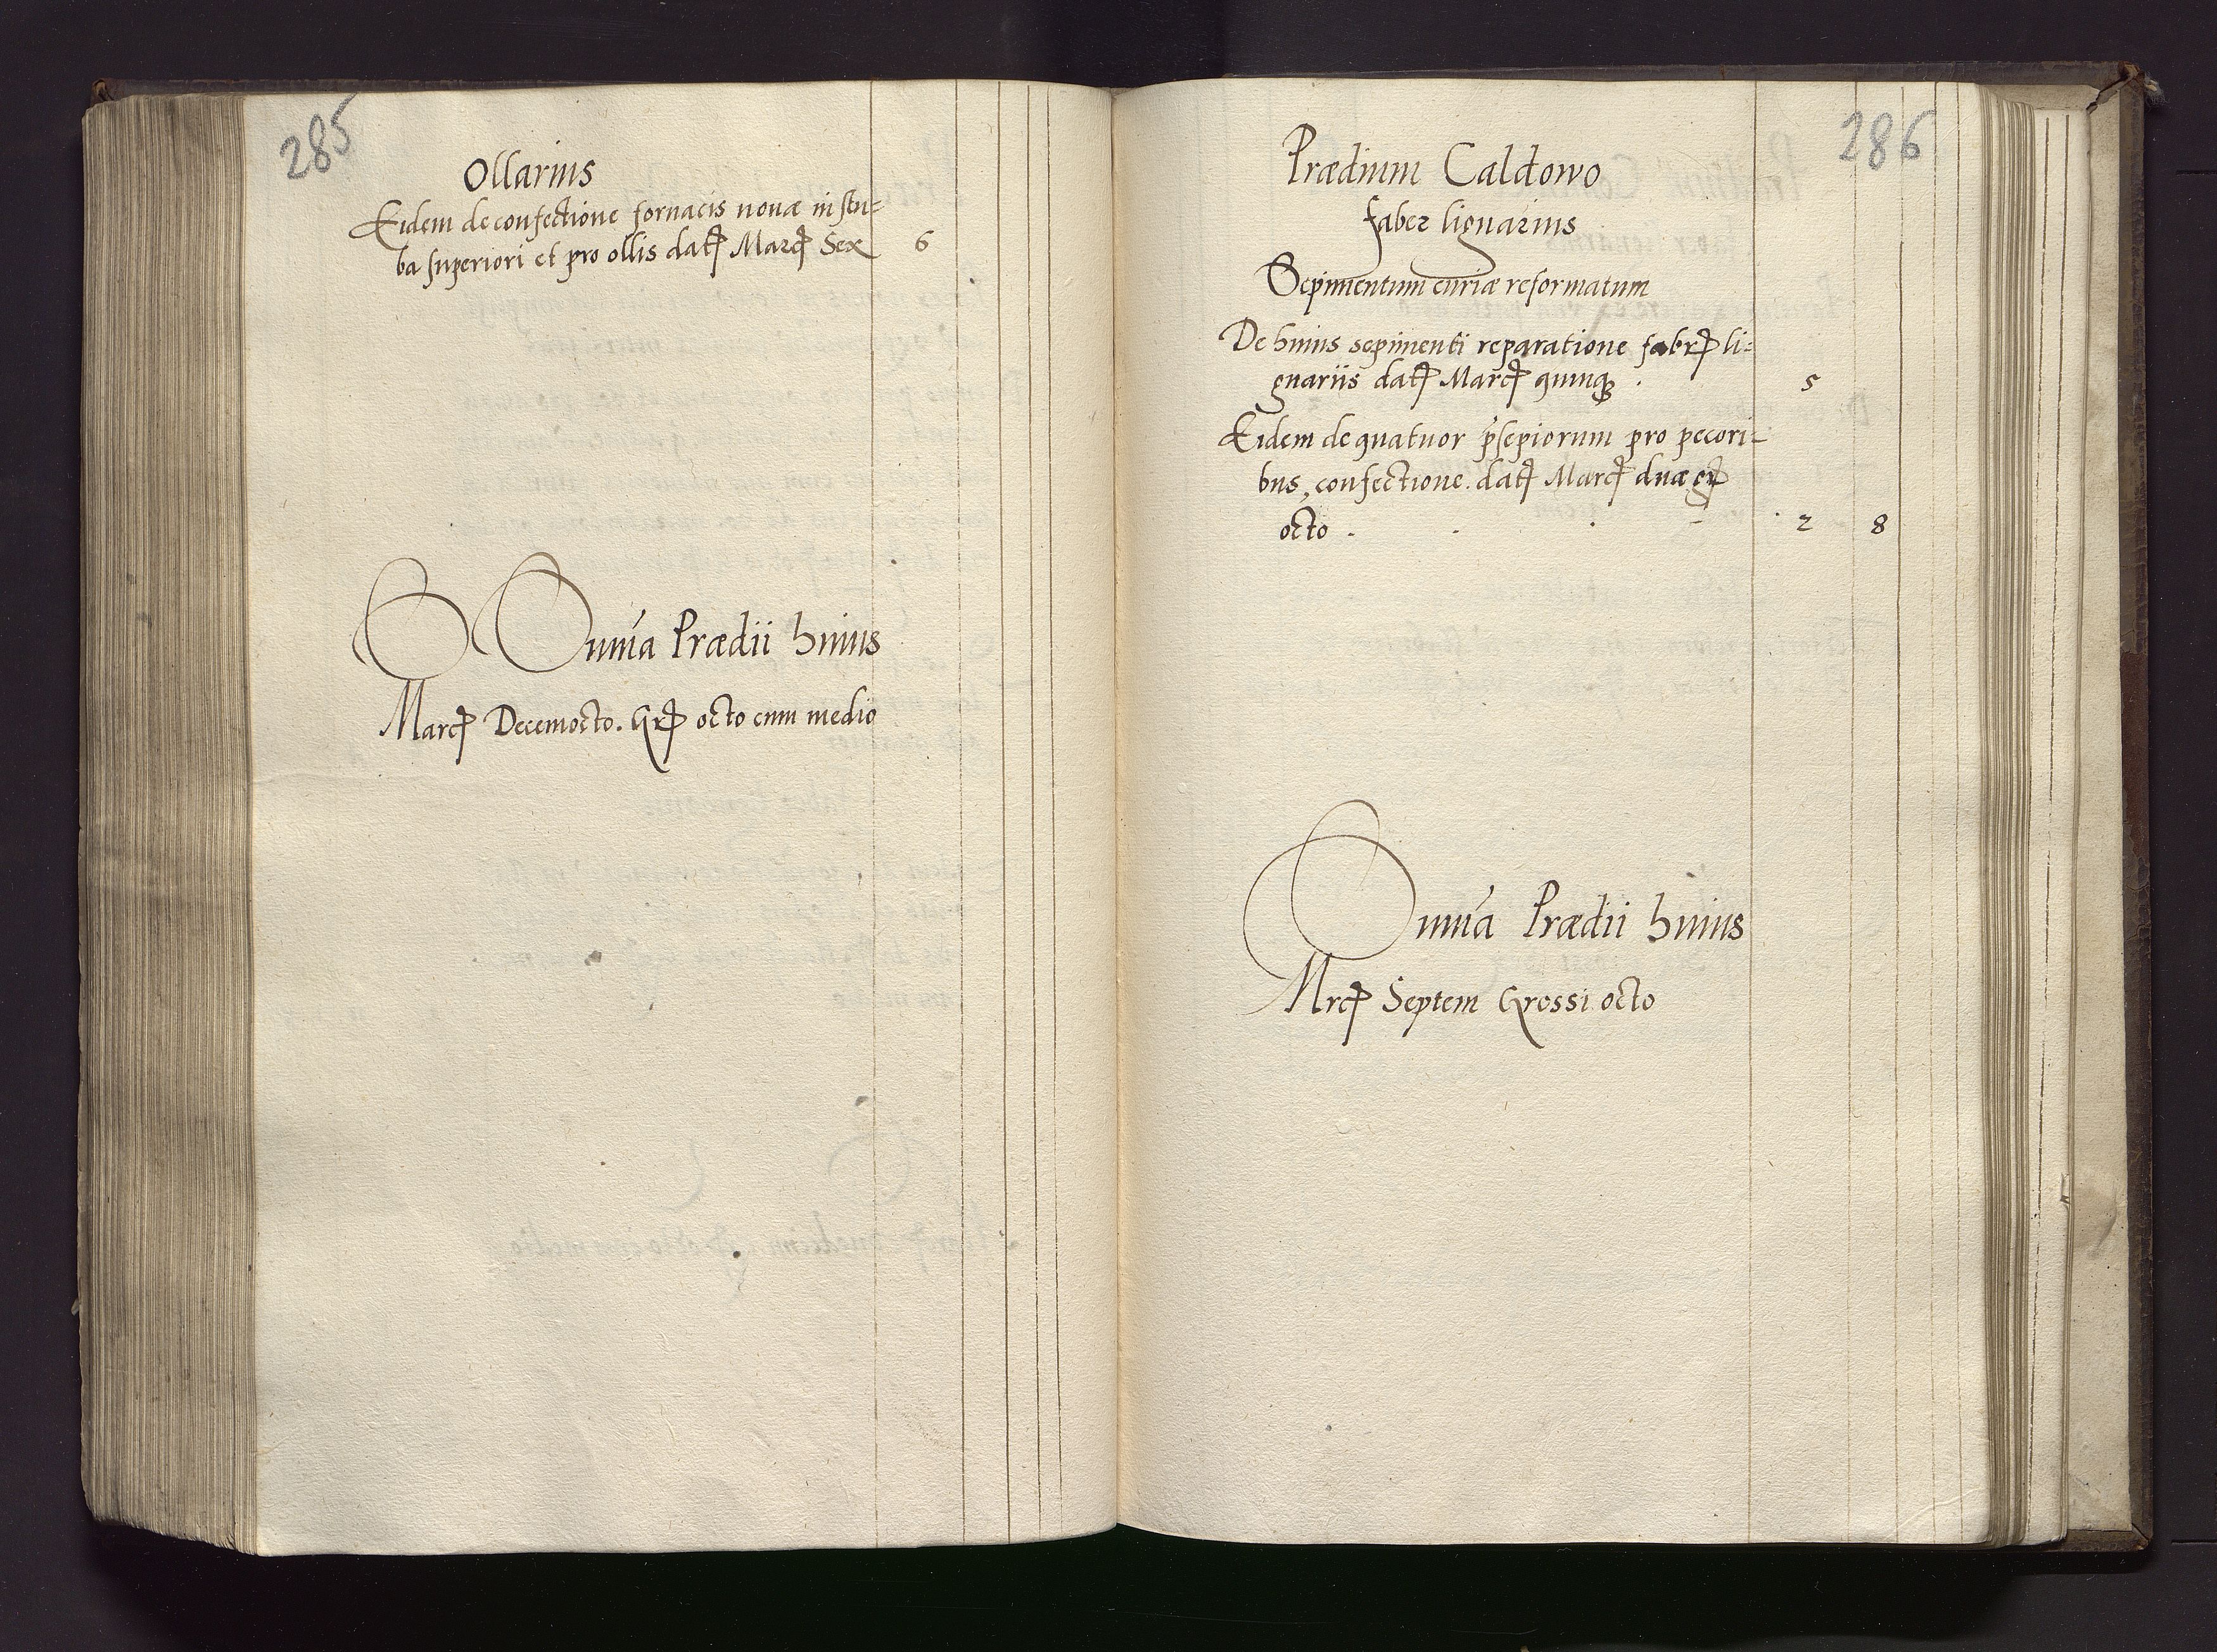 285
Ollarius
Eidem de confectione fornacis nouæ in stu=
ba superiori et pro ollis datꝭ Marcꝭ Sex 6
Sum̃a Prædii huius
Marcꝭ Decemocto. Grꝭ octo cum medio
286
Prædium Caldowo
faber lignarius
Sepimentum curiæ reformatum
De huius sepimenti reparatione fabrꝭ li=
gnariis datꝭ Marcꝭ quinqꝫ . 5
Eidem de quatuor p̃sepiorum pro pecori=
bus, confectione. datꝭ Marcꝭ duæ grꝭ
octo . 2 8
Sum̃a Prædii huius
Mrcꝭ Septem Grossi octo